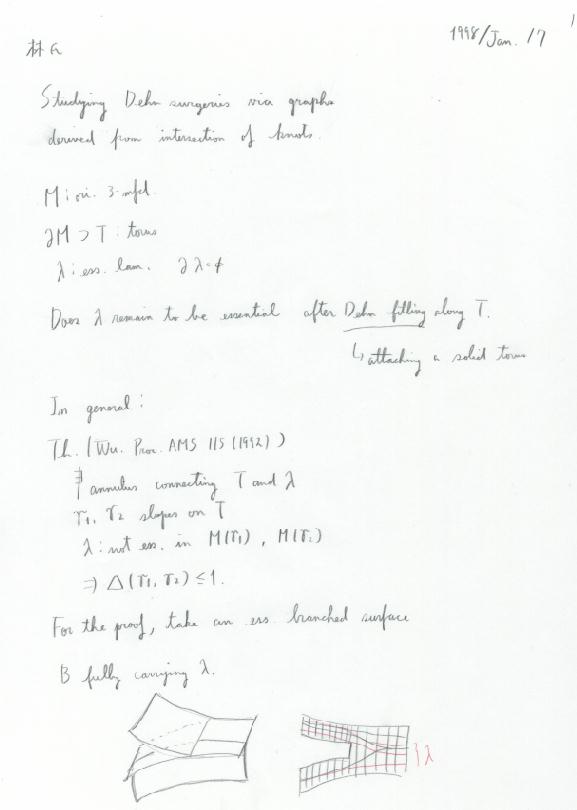 1998/Jan. 17
1
林氏
Studying Dehn surgeries via graphs
derived from intersection of knots.
M : ori. 3-mfd.
∂M ⊃ T : torus
λ : ess. lam. ∂λ=φ
Does λ remain to be essential after Dehn filling along T.
↳ attaching a solid torus
In general :
Th. (Wu. Proc. AMS 115 (1992))
∄ annulus connecting T and λ
γ1, γ2 slopes on T
λ : not ess. in M(γ1), M(γ2)
⇒ Δ(γ1, γ2) ≤ 1.
For the proof, take an ess. branched surface
B fully carrying λ.
λ